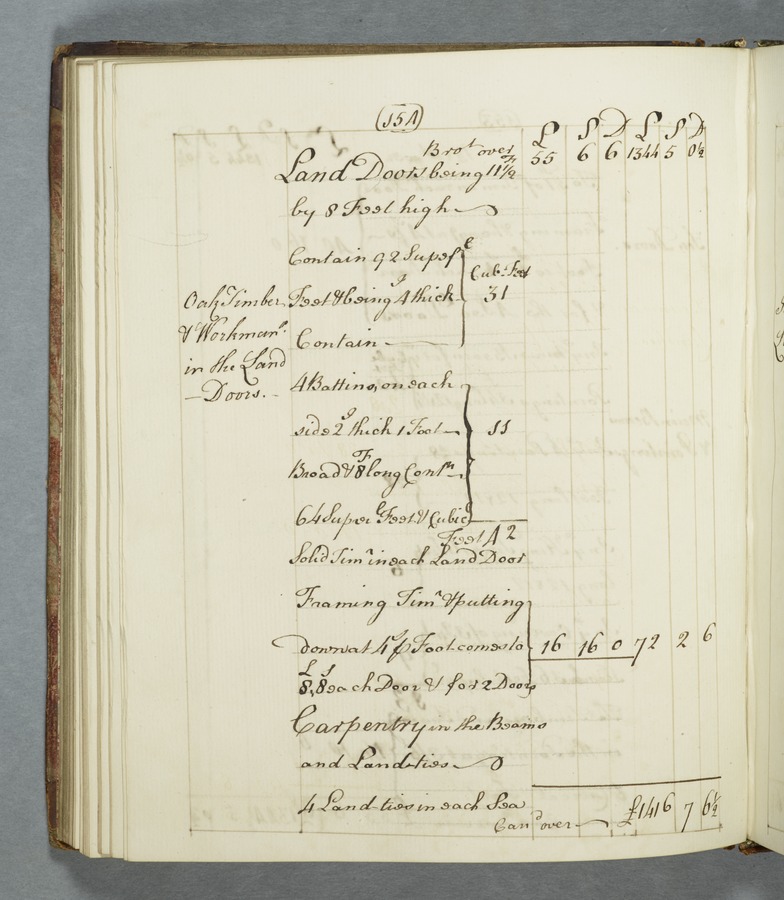 15A
£ S D £ S D
Bro.t over 55 6 6 1344 5 0½
Land Doors being 11½ F
by 8 Feet high
Contain 92 Superf.l
Feet & being 4 I thick
Cub: Feet
31
Contain
Oak Timber
& Workman.p
in the Land
Doors.
4 Battins, on each
side 2 I thick 1 Foot
11
Broad & 8 F long Cont.n
64 Super.l Feet & Cubic
Feet 42
Solid Tim.r in each Land Door
Framing Tim.r & putting
down at 4 S p Foot comes to 16 16 0 72 2 6
£ S
8,8 each Door & for 2 Doors
Carpentry in the Beams
and Land-ties
4 Land-ties in each Sea
Carr.d over £1416 7 6½